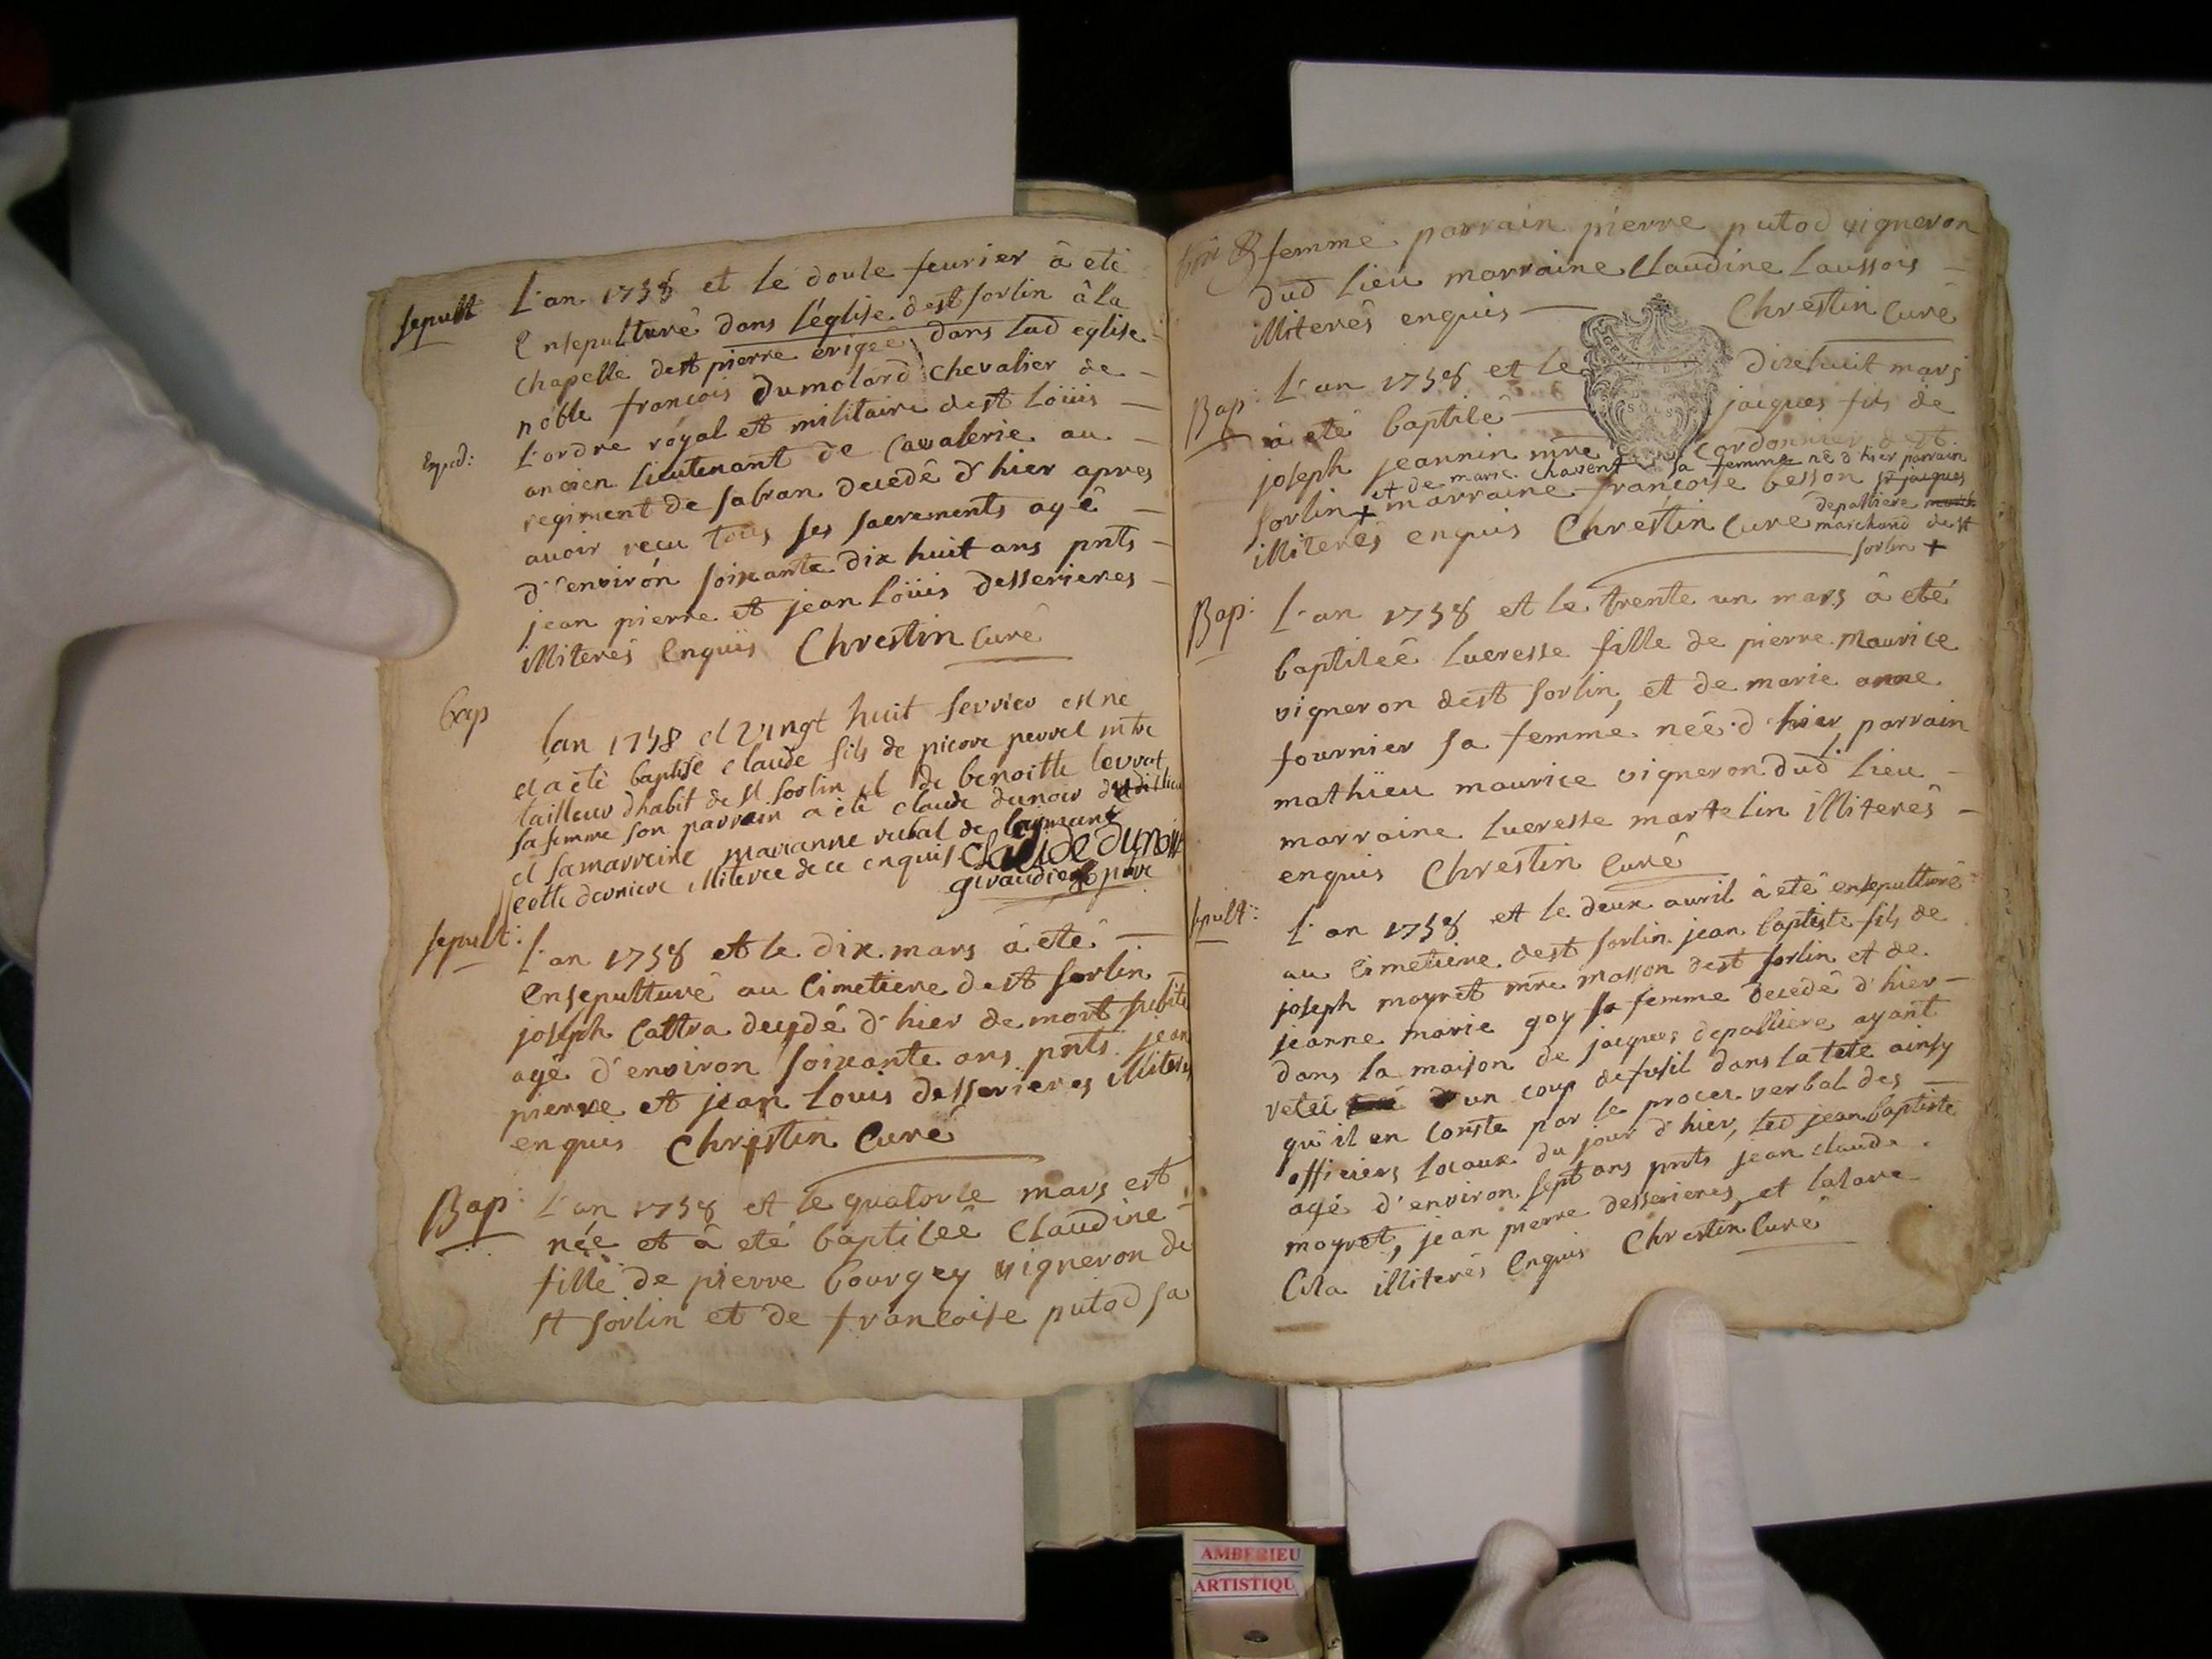 sepult L'an 1758 et le douse feurier â eté
Ensepulturê dans l'église de st sorlin â la
chapelle de st pierre érigée dans lad eglise
noble francois Dumolard chevalier de
L'ordre royal et militaire de st Loüis
Exped:
ancien lieutenant de Cavalerie au
regiment de sabran decedê d'hier apres
auoir reçu tous ses sacrements agê
d'environ soixante dix huit ans pnts
jean pierre et jean Loüis desserieres
illiterés Enquis Chrestin Curé
bap
lan 1758 el vingt huit fevrier est ne
et a eté baptise claude fils de pierre perret mtre
tailleur dhabit de st sorlin et de benoitte levrat
sa femme son parrain a été claude dunoir dudit lieu
et sa marraine marianne rubat de
cette derniere illiteree de ce enquis Claude dunoir
sepult: L'an 1758 et le dix mars â etê
Ensepulturê au Cimetiere de st sorlin
joseph Cattra decedé d'hier de mort subite
agê d'environ soixante ans pnts jean
pierre et jean Louis desserieres illiterés
enquis Chrestin Curé
Bap: L'an 1758 et le quatorse mars est
née et â eté baptiseê Claudine
fille de pierre bourgey vigneron de
st sorlin et de francoise putod sa
femme parrain pierre putod vigneron
dud lieu marraine Claudine Laussois
illiterês enquis Chrestin Curé
Bap: L'an 1758 et le dixehuit mars
â eté baptisê jacques fils de
joseph jeannin mre Cordonnier de st
et de marie chavent sa femme né d'hier parrain
sorlin + marraine francoise besson sr jacques
depalliere
illiterés enquis Chrestin Curé marchand de st
sorlin +
Bap: L'an 1758 et le trente un mars â eté
baptiseê lucresse fille de pierre maurice
vigneron de st sorlin, et de marie anne
fournier sa femme neê d'hier, parrain
mathieu maurice vigneron dud lieu
marraine lucresse martelin illiterês
enquis Chrestin Curê
sepult: L'an 1758 et le deux auril â eté ensepulturê
au Cimetiere de st sorlin jean baptiste fils de
joseph moyret mre masson de st sorlin et de
jeanne marie goy sa femme decedê d'hier
dans la maison de jacques depalliere ayant
un coup de fusil dans la tete ainsy
qu'il en conste par le proces verbal des
officiers locaux du jour d'hier, led jean baptiste
agé d'environ sept ans pnts jean claude
moyret, jean pierre desserieres, et lasare
Cola illiterés Enquis Chrestin Curé
AMBERIEU
ARTISTIQU